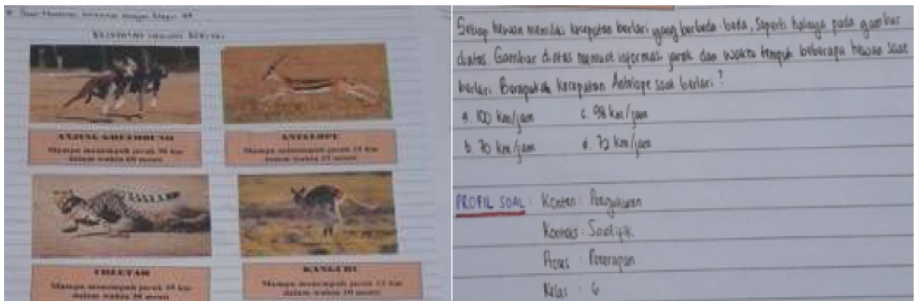 ANJING GREYHOUND
Mampu menempuh jarak
dalam waktu 60 menit
ANTELOPE
Mampu menempuh jarak
dalam waktu menit
CHEETAH
Mampu menempuh jarak
dalam waktu 30 menit
KANGURU
Mampu menempuh jarak 12 km
dalam waktu menit
Setiap hewan memiliki kecepatan berlari yang berbeda beda, seperti halnya pada gambar
diatas. Gambar diatas memuat informasi jarak dan waktu tempuh beberapa hewan saat
berlari. Berapakah kecepatan Antelope saat berlari?
a. 100 km/jam c. 98 km/jam
b. 70 km/jam d. 72 km/jam
PROFIL SOAL : Konten : Pengukuran
Konteks : Saintifik
Proses : Penerapan
Kelas : 6